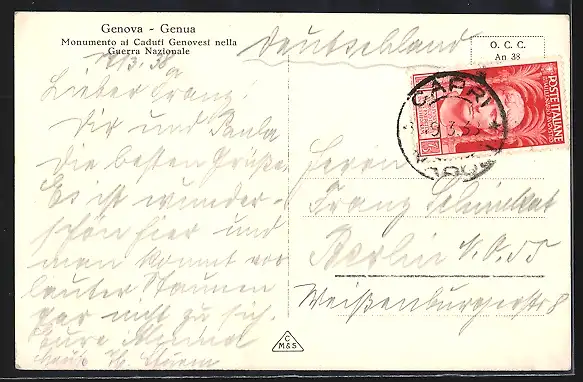 Genova - Genua
Monumento ai Caduti Genovesi nella
Guerra Nazionale
Deutschland
O. C. C.
An 38
POSTE ITALIANE
CAPRI
Lieber Franz!
Dir und Paula
die besten Grüße.
Es ist wunder-
schön hier und
man kommt vor
lauter Staunen
gar nicht zu sich.
Eure
Herrn
Franz
Berlin N.O.55
Weißenburgerstr 8
C
M&S